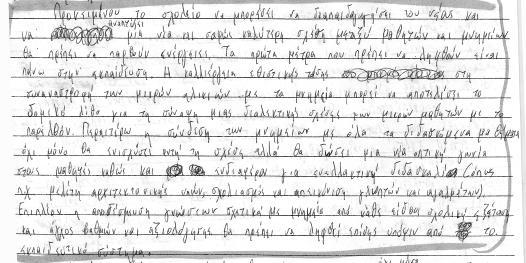 Προκειμένου το σχολείο να μπορέσει να διαπαιδαγωγήσει τους νέους και
να αναπτύξει μια νέα και σαφώς καλύτερη σχέση μεταξύ μαθητών και μνημείων
θα πρέπει να παρθούν ενέργειες. Τα πρώτα μέτρα που πρέπει να ληφθούν είναι
πάνω στην εκπαίδευση. Η καλλιέργεια εθιστικής τάσης στη
συναναστροφή των μικρών ηλικιών με τα μνημεία μπορεί να αποτελέσει το
δομικό λίθο για τη σύναψη μιας διαλεκτικής σχέσης των μικρών μαθητών με το
παρελθόν. Περαιτέρω η σύνδεση των μνημείων με όλα τα διδασκόμενα μαθήματα
όχι μόνο θα ενισχύσει αυτή τη σχέση αλλά θα δώσει μια νέα οπτική γωνία
στους μαθητές καθώς και ενδιαφέρον για εναλλακτική διδασκαλία (όπως
π.χ μελέτη αρχιτεκτονικής ναών, σχολιασμός και απεικόνιση γλυπτών και αγαλμάτων).
Επιπλέον η αποδέσμευση γνώσεων σχετικά με μνημεία από κάθε είδους σχολική εξέταση
και άγχος βαθμών και αξιολόγησης θα πρέπει να ληφθεί επίσης υπόψιν από το
εκπαιδευτικό σύστημα.